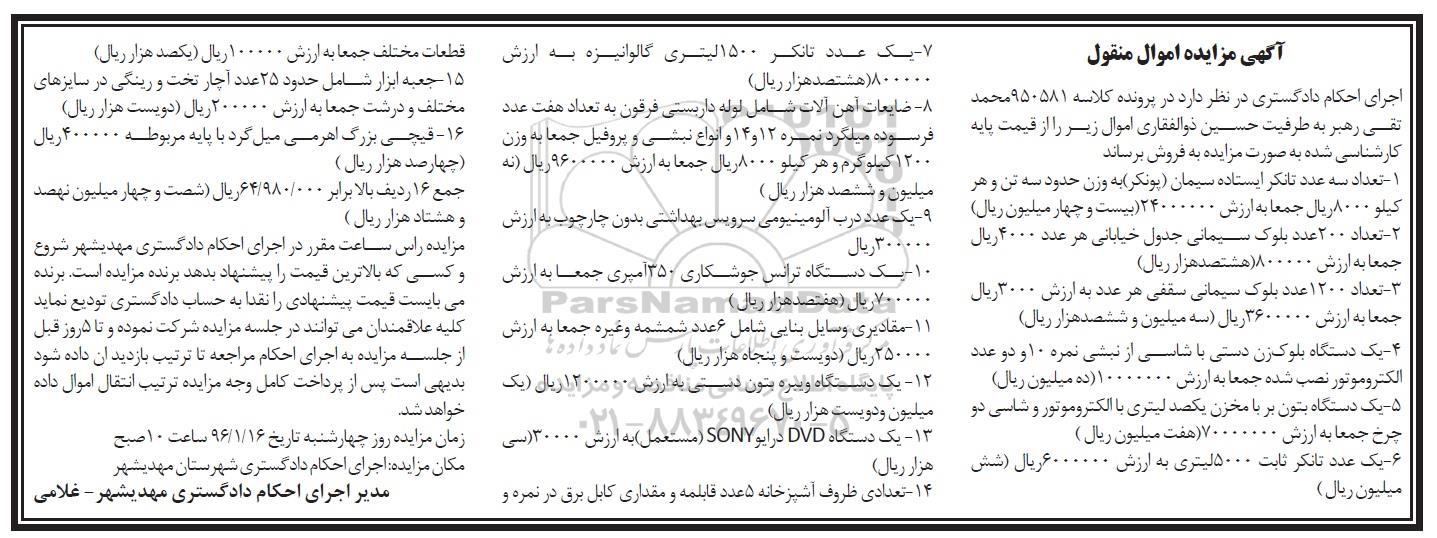 آگهی مزایده اموال منقول
اجرای احکام دادگستری در نظر دارد در پرونده کلاسه ۹۵۰۵۸۱محمد
تقی رهبر به طرفیت حسین ذوالفقاری اموال زیر را از قیمت پایه
کارشناسی شده به صورت مزایده به فروش برساند
۱-تعداد سه عدد تانکر ایستاده سیمان (پونکر)به وزن حدود سه تن و هر
کیلو ۸۰۰۰ریال جمعا به ارزش ۲۴۰۰۰۰۰۰(بیست و چهار میلیون ریال)
۲-تعداد ۲۰۰عدد بلوک سیمانی جدول خیابانی هر عدد ۴۰۰۰ریال
جمعا به ارزش ۸۰۰۰۰۰(هشتصدهزار ریال)
۳-تعداد ۱۲۰۰عدد بلوک سیمانی سقفی هر عدد به ارزش ۳۰۰۰ریال
جمعا به ارزش ۳۶۰۰۰۰۰ریال (سه میلیون و ششصدهزار ریال)
۴-یک دستگاه بلوک‌زن دستی با شاسی از نبشی نمره ۱۰و دو عدد
الکتروموتور نصب شده جمعا به ارزش ۱۰۰۰۰۰۰۰(ده میلیون ریال)
۵-یک دستگاه بتون بر با مخزن یکصد لیتری با الکتروموتور و شاسی دو
چرخ جمعا به ارزش ۷۰۰۰۰۰۰(هفت میلیون ریال )
۶-یک عدد تانکر ثابت ۵۰۰۰لیتری به ارزش ۶۰۰۰۰۰۰ریال (شش
میلیون ریال)
۷-یک عدد تانکر ۱۵۰۰لیتری گالوانیزه به ارزش
۸۰۰۰۰۰(هشتصدهزار ریال)
۸- ضایعات آهن آلات شامل لوله داربستی فرقون به تعداد هفت عدد
فرسوده میلگرد نمره ۱۲و۱۴و انواع نبشی و پروفیل جمعا به وزن
۱۲۰۰کیلوگرم و هر کیلو ۸۰۰۰ریال جمعا به ارزش ۹۶۰۰۰۰۰ریال (نه
میلیون و ششصد هزار ریال )
۹-یک عدد درب آلومینیومی سرویس بهداشتی بدون چارچوب به ارزش
۳۰۰۰۰۰ریال
۱۰-یک دستگاه ترانس جوشکاری ۳۵۰آمپری جمعا به ارزش
۷۰۰۰۰۰ریال (هفتصدهزار ریال)
۱۱-مقادیری وسایل بنایی شامل ۶عدد شمشمه وغیره جمعا به ارزش
۲۵۰۰۰۰ریال (دویست و پنجاه هزار ریال)
۱۲- یک دستگاه ویبره بتون دستی به ارزش ۱۲۰۰۰۰۰ریال (یک
میلیون ودویست هزار ریال)
۱۳- یک دستگاه DVD درایوSONY (مستعمل)به ارزش ۳۰۰۰۰(سی
هزار ریال)
۱۴-تعدادی ظروف آشپزخانه ۵عدد قابلمه و مقداری کابل برق در نمره و
قطعات مختلف جمعا به ارزش ۱۰۰۰۰۰ریال (یکصد هزار ریال)
۱۵-جعبه ابزار شامل حدود ۲۵عدد آچار تخت و رینگی در سایزهای
مختلف و درشت جمعا به ارزش ۲۰۰۰۰۰ریال (دویست هزار ریال)
۱۶- قیچی بزرگ اهرمی میل گرد با پایه مربوطه ۴۰۰۰۰۰ریال
(چهارصد هزار ریال )
جمع ۱۶ردیف بالا برابر ۶۴/۹۸۰/۰۰۰ریال (شصت و چهار میلیون نهصد
و هشتاد هزار ریال )
مزایده راس ساعت مقرر در اجرای احکام دادگستری مهدیشهر شروع
و کسی که بالاترین قیمت را پیشنهاد بدهد برنده مزایده است. برنده
می بایست قیمت پیشنهادی را نقدا به حساب دادگستری تودیع نماید
کلیه علاقمندان می توانند در جلسه مزایده شرکت نموده و تا ۵روز قبل
از جلسه مزایده به اجرای احکام مراجعه تا ترتیب بازدید ان داده شود
بدیهی است پس از پرداخت کامل وجه مزایده ترتیب انتقال اموال داده
خواهد شد.
زمان مزایده روز چهارشنبه تاریخ ۹۶/۱/۱۶ ساعت ۱۰صبح
مکان مزایده: اجرای احکام دادگستری شهرستان مهدیشهر
مدیر اجرای احکام دادگستری مهدیشهر- غلامی
ParsNamadData
پایگاه اطلاع رسانی مناقصه و مزایده
۰۲۱-۸۸۳۴۹۶۷۰-۵